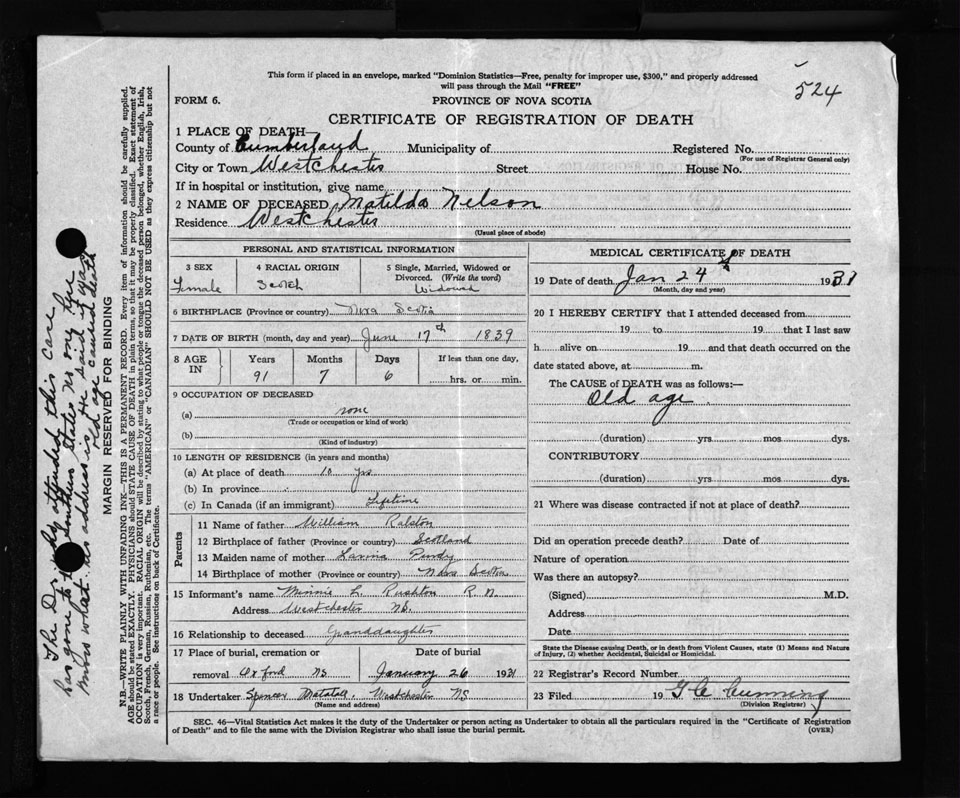 524
This form if placed in an envelope, marked "Dominion Statistics—Free, penalty for improper use, $300," and properly addressed
will pass through the Mail "FREE"
FORM 6.
PROVINCE OF NOVA SCOTIA
CERTIFICATE OF REGISTRATION OF DEATH
1 PLACE OF DEATH—
County of Cumberland Municipality of Registered No.
(For use of Registrar General only)
City or Town Westchester Street House No.
If in hospital or institution, give name
2 NAME OF DECEASED Matilda Nelson
Residence Westchester
(Usual place of abode)
PERSONAL AND STATISTICAL INFORMATION
3 SEX
Female
4 RACIAL ORIGIN
Scotch
5 Single, Married, Widowed or
Divorced. (Write the word)
Widowed
6 BIRTHPLACE (Province or country) Nova Scotia
7 DATE OF BIRTH (month, day and year) June 17th 1839
8 AGE IN
Years Months Days If less than one day,
91 7 6 hrs. or min.
9 OCCUPATION OF DECEASED
(a) none
(Trade or occupation or kind of work)
(b)
(Kind of industry)
10 LENGTH OF RESIDENCE (in years and months)
(a) At place of death 10 yrs
(b) In province
(c) In Canada (if an immigrant) Lifetime
Parents
11 Name of father William Ralston
12 Birthplace of father (Province or country) Scotland
13 Maiden name of mother Lavina Purdy
14 Birthplace of mother (Province or country) Nova Scotia
15 Informant's name Minnie L. Rushton R.N.
Address Westchester NS.
16 Relationship to deceased Granddaughter
17 Place of burial, cremation or Date of burial
removal Oxford NS January 26 1931
18 Undertaker Spencer Westchester NS
(Name and address)
MEDICAL CERTIFICATE OF DEATH
19 Date of death Jan 24 1931
(Month, day and year)
20 I HEREBY CERTIFY that I attended deceased from
19 to 19 that I last saw
h alive on 19 and that death occurred on the
date stated above, at m.
The CAUSE of DEATH was as follows:—
Old age
(duration) yrs. mos dys.
CONTRIBUTORY
(duration) yrs mos dys.
21 Where was disease contracted if not at place of death?
Did an operation precede death? Date of
Nature of operation
Was there an autopsy?
(Signed) M.D.
Address
Date
State the Disease causing Death, or in death from Violent Causes, state (1) Means and Nature
of Injury, (2) whether Accidental, Suicidal or Homicidal.
22 Registrar's Record Number
23 Filed 19 G C Cunning
(Division Registrar)
SEC. 46—Vital Statistics Act makes it the duty of the Undertaker or person acting as Undertaker to obtain all the particulars required in the "Certificate of Registration
of Death" and to file the same with the Division Registrar who shall issue the burial permit. (OVER)
The Dr. who attended this case
has gone to Southern States no one here
knows what his address is. He said it was
old age caused death
MARGIN RESERVED FOR BINDING
N.B.—WRITE PLAINLY WITH UNFADING INK—THIS IS A PERMANENT RECORD. Every item of information should be carefully supplied.
AGE should be stated EXACTLY. PHYSICIANS should STATE CAUSE OF DEATH in plain terms, so that it may be properly classified. Exact statement of
OCCUPATION is very important. RACIAL ORIGIN will be described by stating to what people or tongue the deceased person belonged, whether English, Irish,
Scotch, French, German, Russian, Ruthenian, etc. The terms "AMERICAN" or "CANADIAN" SHOULD NOT BE USED as they express citizenship but not
a race or people. See instructions on back of Certificate.